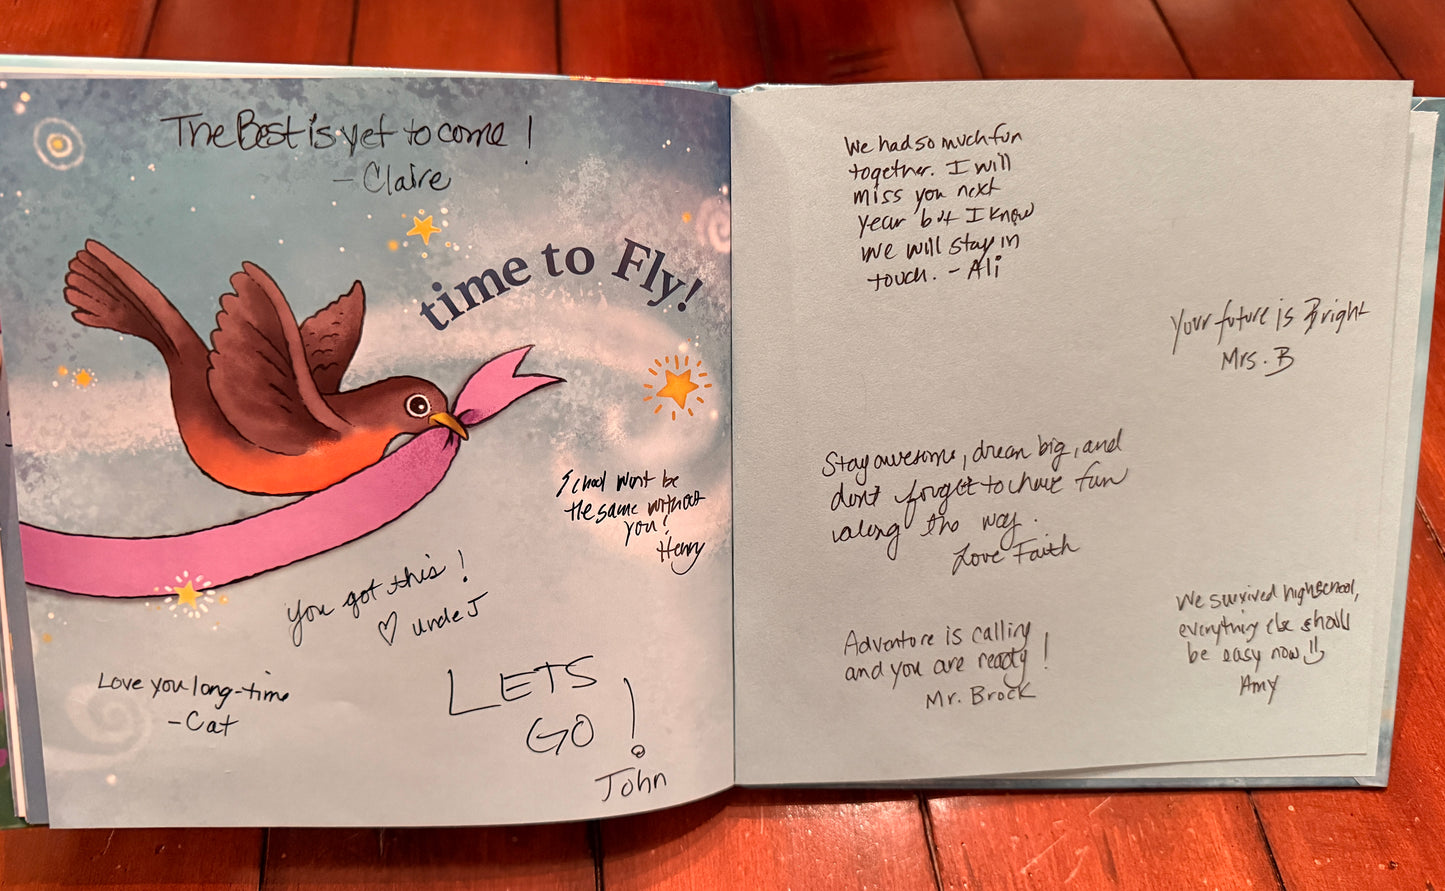 The Best is yet to come!
- Claire
time to Fly!
School wont be
the same without
you!
Henry
you got this!
♡ uncle J
Love you long-time
- Cat
LETS
GO!
John
We had so much fun
together. I will
miss you next
year but I know
we will stay in
touch. - Ali
Your future is Bright
Mrs. B
Stay awesome, dream big, and
don't forget to have fun
along the way.
Love Faith
Adventure is calling
and you are ready!
Mr. Brock
We survived highschool,
everything else should
be easy now
Amy